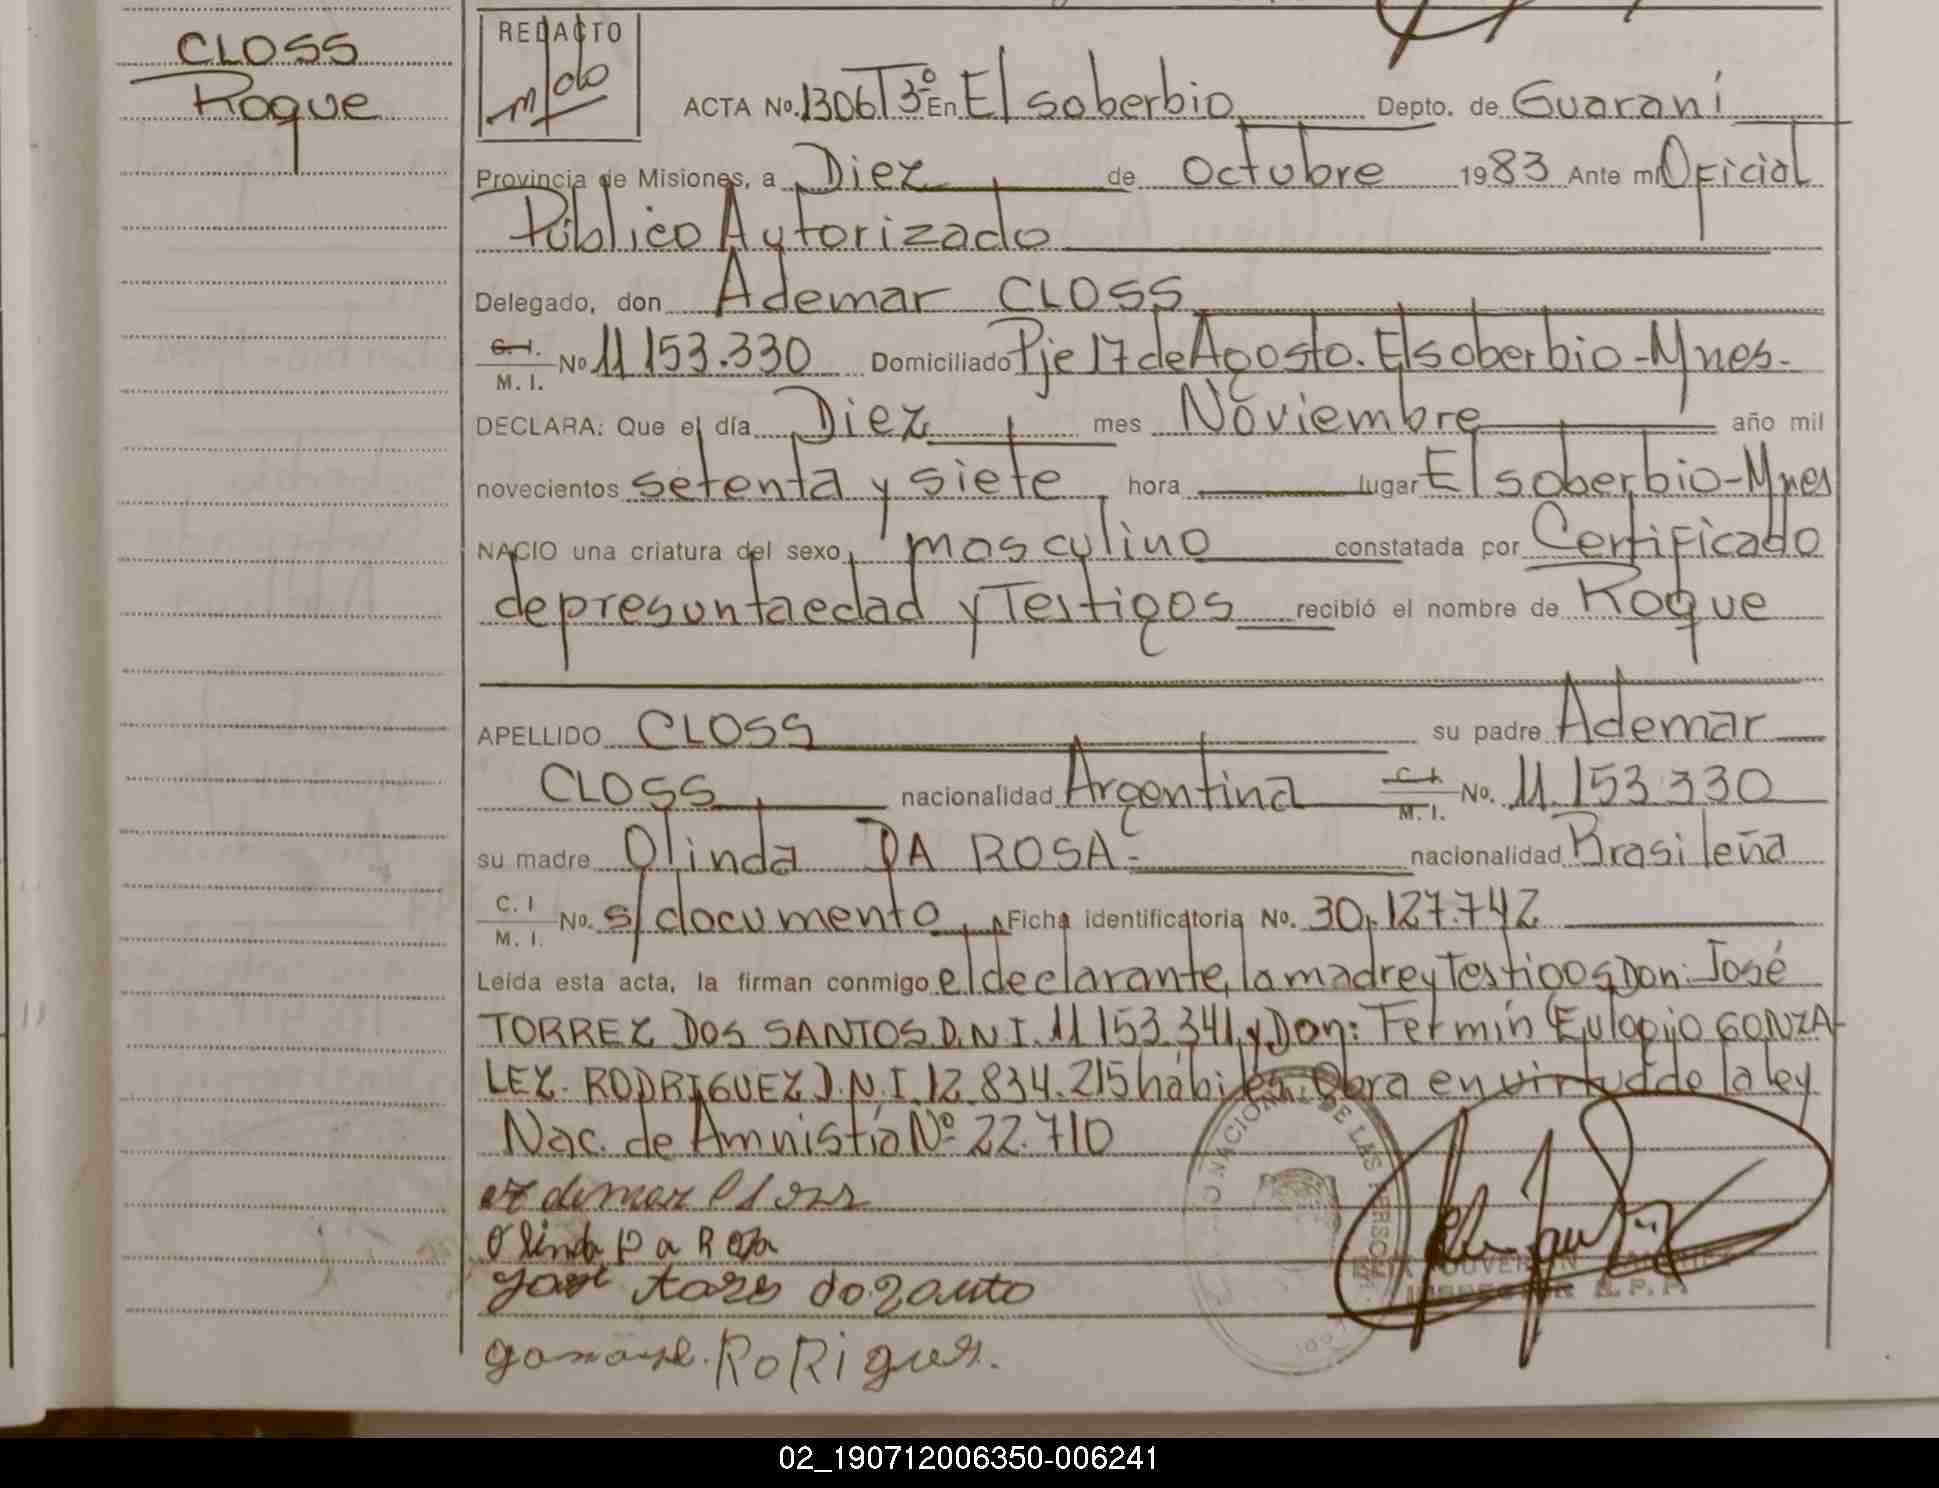 CLOSS
Roque
REDACTO
ACTA No. 1306 T3º En El soberbio Depto. de Guaraní
Provincia de Misiones, a Diez de octubre 1983 Ante mí Oficial
Público Autorizado
Delegado, don Ademar CLOSS
C. I.
M. I. No 11.153.330 Domiciliado Pje 17 de Agosto. El soberbio - Mnes-
DECLARA: Que el día Diez mes Noviembre año mil
novecientos setenta y siete hora lugar El soberbio - Mnes
NACIO una criatura del sexo masculino constatada por Certificado
de presunta edad y Testigos recibió el nombre de Roque
APELLIDO CLOSS su padre Ademar
CLOSS nacionalidad Argentina C. I. M. I. No. 11.153.330
su madre Olinda DA ROSA- nacionalidad Brasileña
C. I
M. I. No. s/documento Ficha identificatoria No. 30.127.742
Leída esta acta, la firman conmigo el declarante, la madre y Testigos Don: José
TORREZ DOS SANTOS D.N.I. 11.153.341 y Don: Fermín Eulogio GONZA-
LEZ. RODRIGUEZ D.N.I. 12.834.215 hábiles. Obra en virtud de la ley
Nac. de Amnistía Nº 22.710
Olinda Da Rosa
RoRigues.
02_190712006350-006241